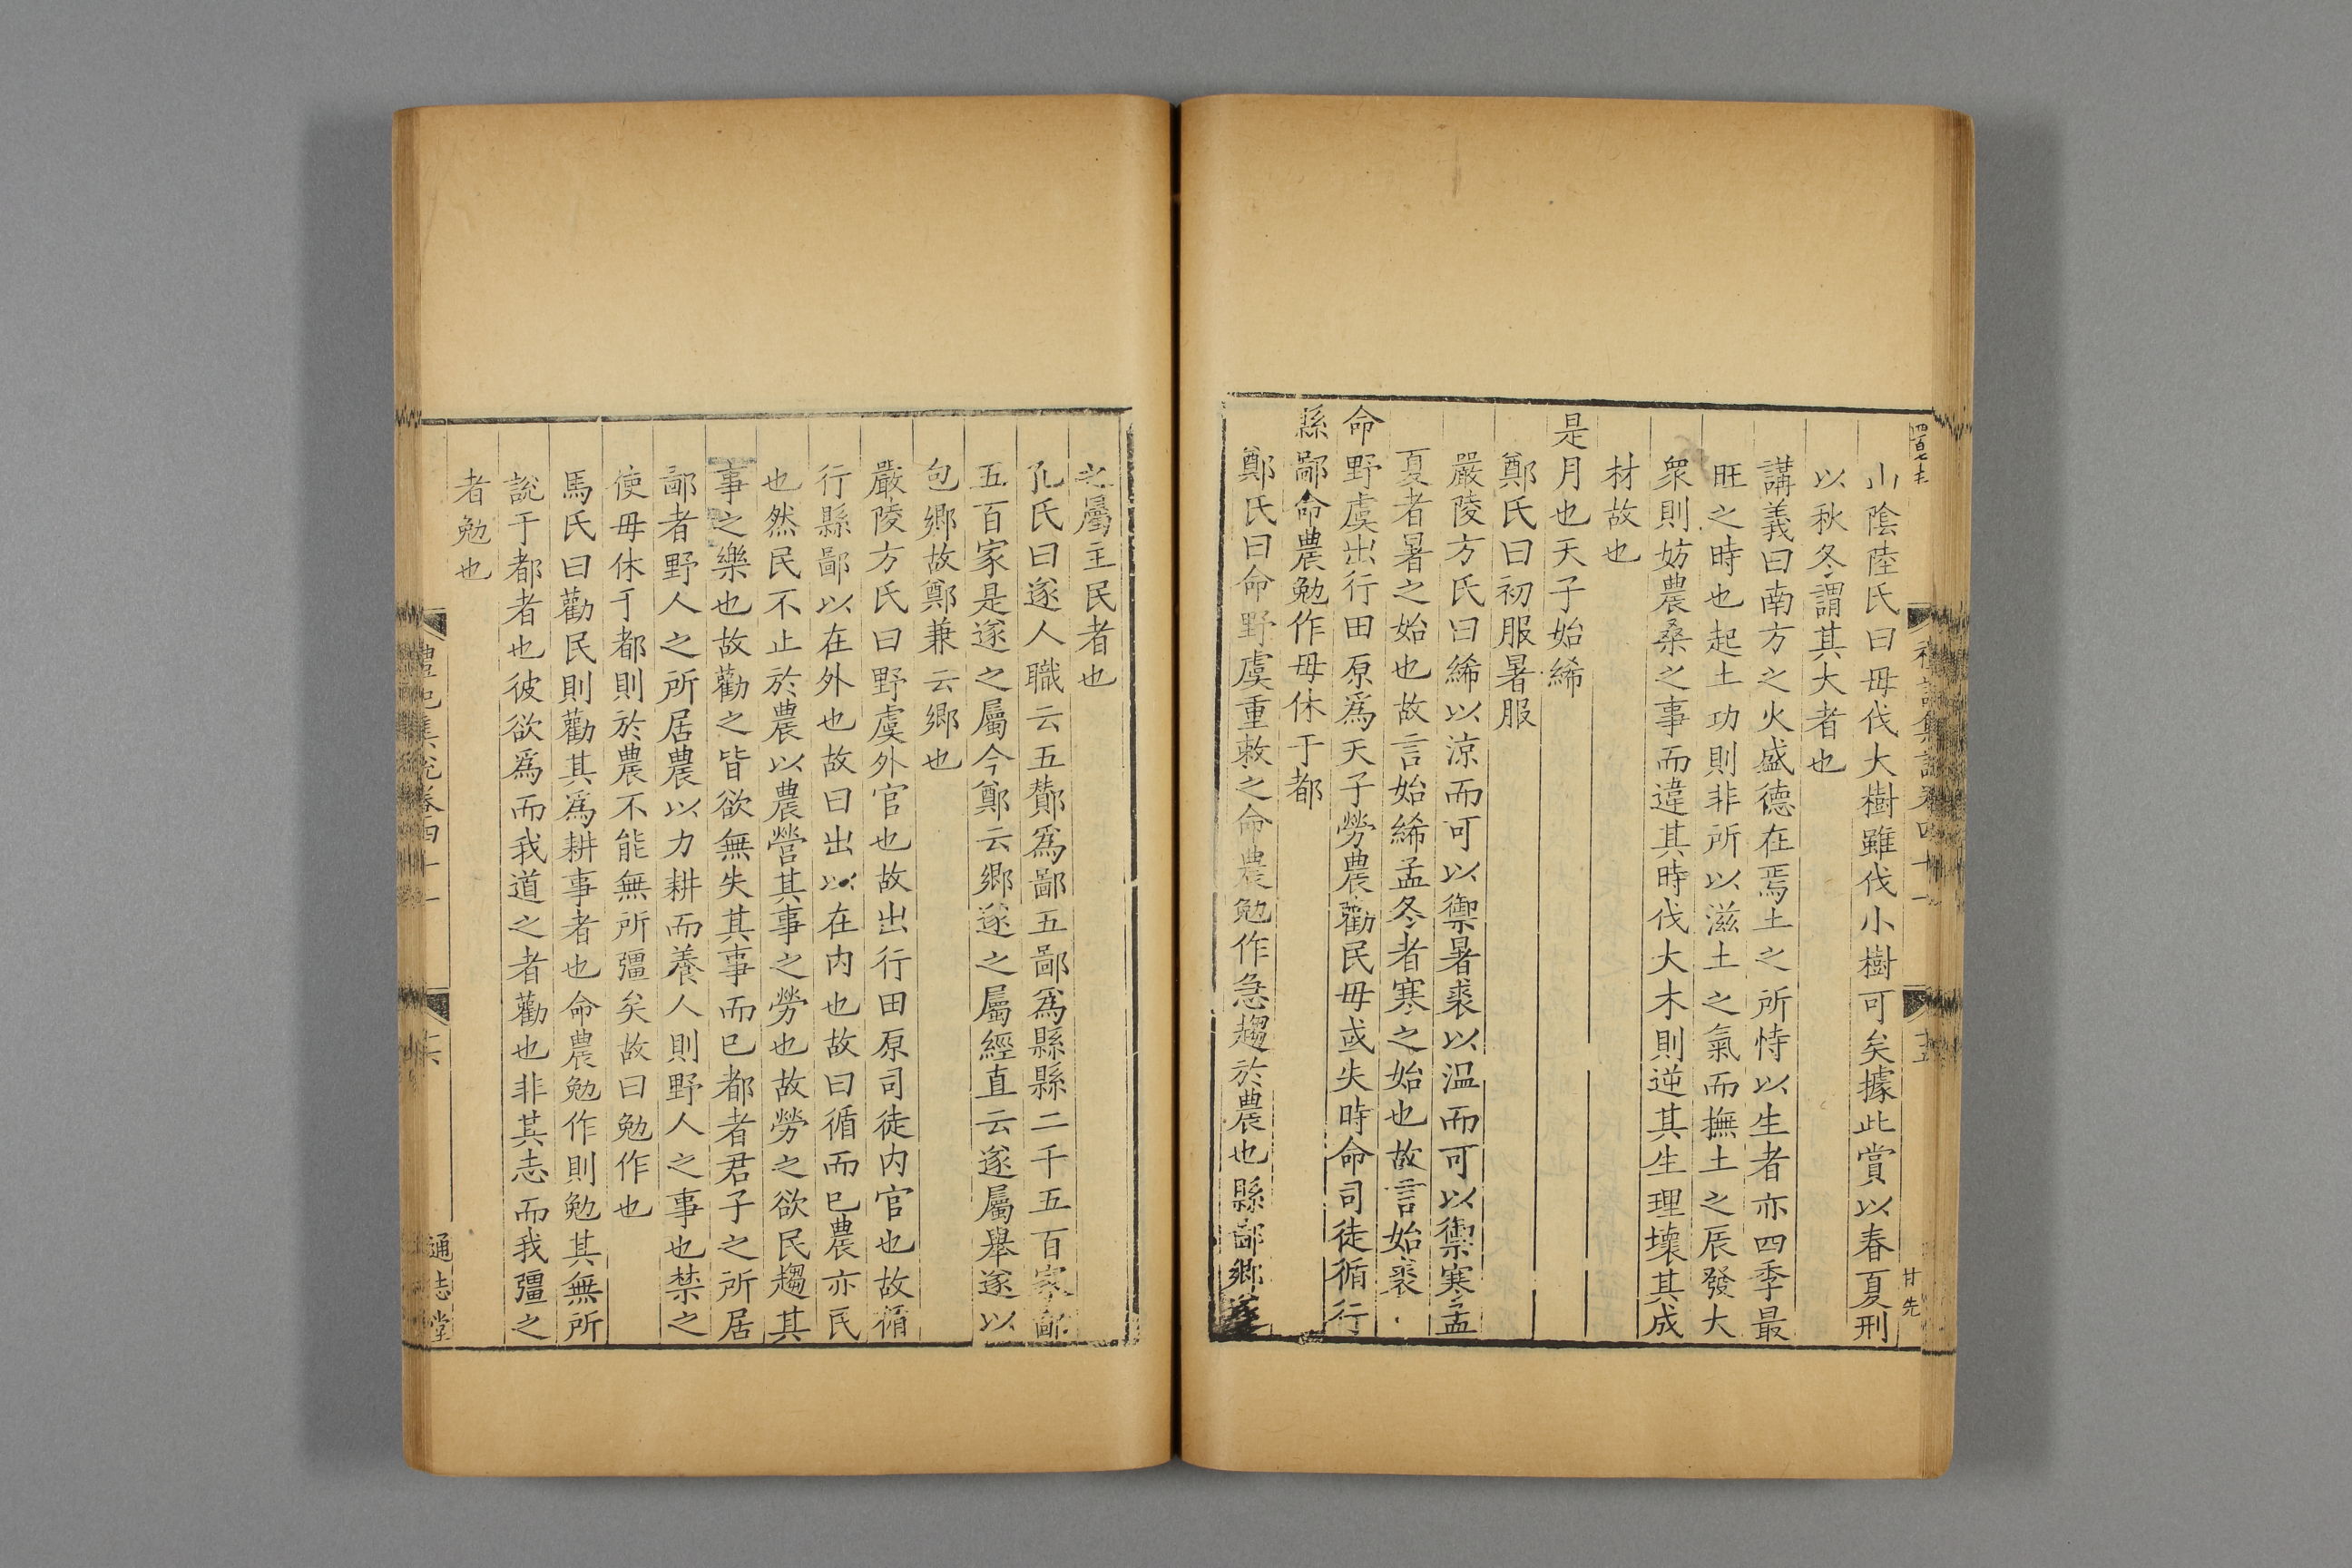 山陰陸氏曰毋伐大樹雖伐小樹可矣據此賞以春夏刑
以秋冬謂其大者也
講義曰南方之火盛德在焉土之所恃以生者亦四季最
旺之時也起土功則非所以滋土之氣而撫土之辰發大
衆則妨農桑之事而違其時伐大木則逆其生理壞其成
材故也
是月也天子始絺
鄭氏曰初服暑服
嚴陵方氏曰絺以涼而可以禦暑裘以温而可以禦寒孟
夏者暑之始也故言始絺孟冬者寒之始也故言始裘
命野虞出行田原爲天子勞農勸民毋或失時命司徒循行
縣鄙命農勉作毋休于都
鄭氏曰命野虞重敕之命農勉作急趨於農也縣鄙鄉遂
之屬主民者也
孔氏曰遂人職云五酇爲鄙五鄙爲縣縣二千五百家鄙
五百家是遂之屬今鄭云鄉遂之屬經直云遂屬舉遂以
包鄉故鄭兼云鄉也
嚴陵方氏曰野虞外官也故出行田原司徒内官也故循
行縣鄙以在外也故曰出以在内也故曰循而已農亦民
也然民不止於農以農營其事之勞也故勞之欲民趨其
事之樂也故勸之皆欲無失其事而已都者君子之所居
鄙者野人之所居農以力耕而養人則野人之事也禁之
使毋休于都則於農不能無所彊矣故曰勉作也
馬氏曰勸民則勸其爲耕事者也命農勉作則勉其無所
說于都者也彼欲爲而我道之者勸也非其志而我彊之
者勉也
禮記集說卷四十一
十六
通志堂
十五
甘先